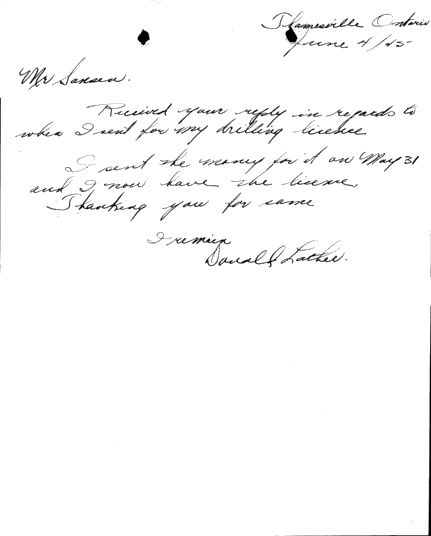 Thamesville Ontario
June 4/45
Mr Sansen.
Received your reply in regards to
when I sent for my drilling licence
I sent the money for it on May 31
and I now have the license,
Thanking you for same
I remain
Donald Lather.